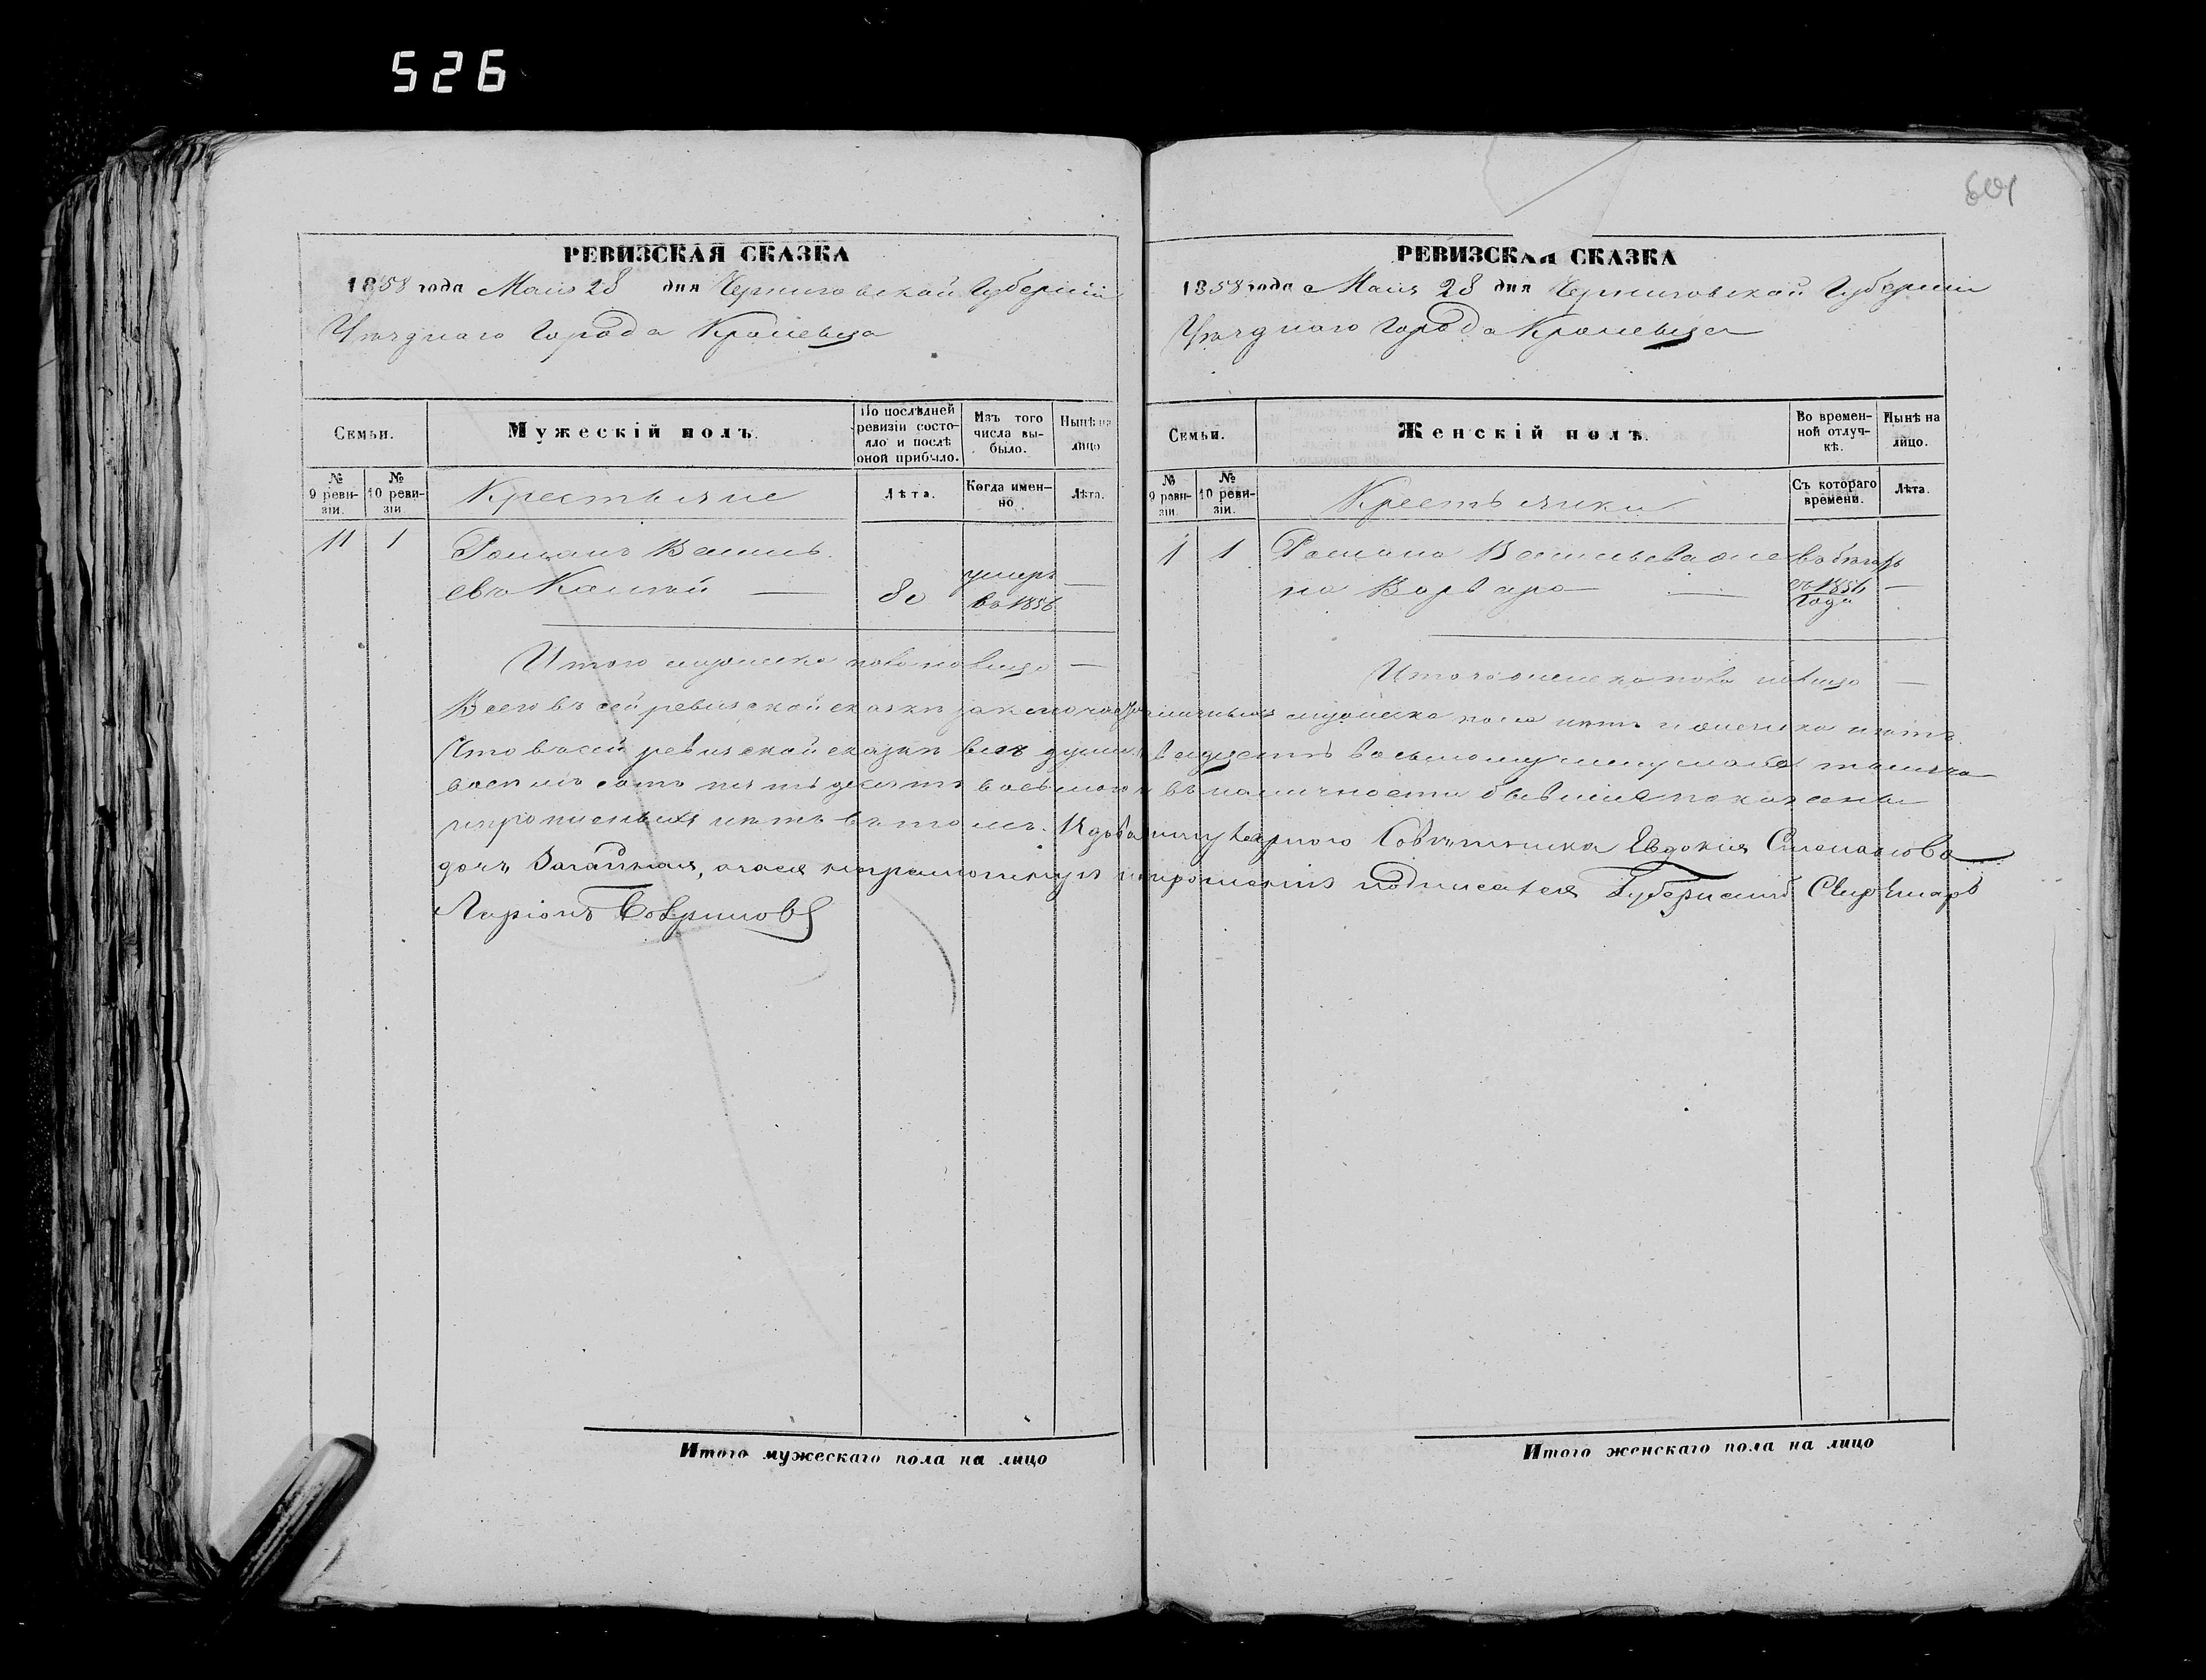 526
601
РЕВИЗСКАЯ СКАЗКА
1858 года Маия 28 дня Черниговской Губерніи
Уѣзднаго Города Кролевца
Семьи.
Мужескій полъ.
По послѣдней ревизіи состояло и послѣ оной прибыло.
Изъ того числа выбыло.
Нынѣ на лицо
№ 9 ревизіи.
№ 10 ревизіи.
Крестьяне
Лѣта.
Когда именно.
Лѣта.
11 1 Романъ Василь
евъ — 80 умеръ въ 1856 —
Итого мужеска пола на лицо —
РЕВИЗСКАЯ СКАЗКА
1858 года Маия 28 дня Черниговской Губерніи
Уѣзднаго Города Кролевца
Семьи.
Женскій полъ.
Во временной отлучкѣ.
Нынѣ на лицо.
№ 9 ревизіи.
№ 10 ревизіи.
Крестьянки
Съ котораго времени.
Лѣта.
1 1 Романа Васильева жена въ бѣгахъ
Варвара — года —
Итого женска пола на лицо —
Всего въ сей ревизской сказкѣ наличныхъ мужеска пола нѣтъ и женска нѣтъ
Что въ сей ревизской сказкѣ всѣ души
восемь сотъ пятьдесятъ восьмого въ наличности бывшие показаны
и прописныхъ нѣтъ въ томъ. Вдова Совѣтника Евдокія Степанова
дочь а за неграмотную по прошенію подписался Губернскій Секретарь
Ларіонъ
Итого мужескаго пола на лицо
Итого женскаго пола на лицо